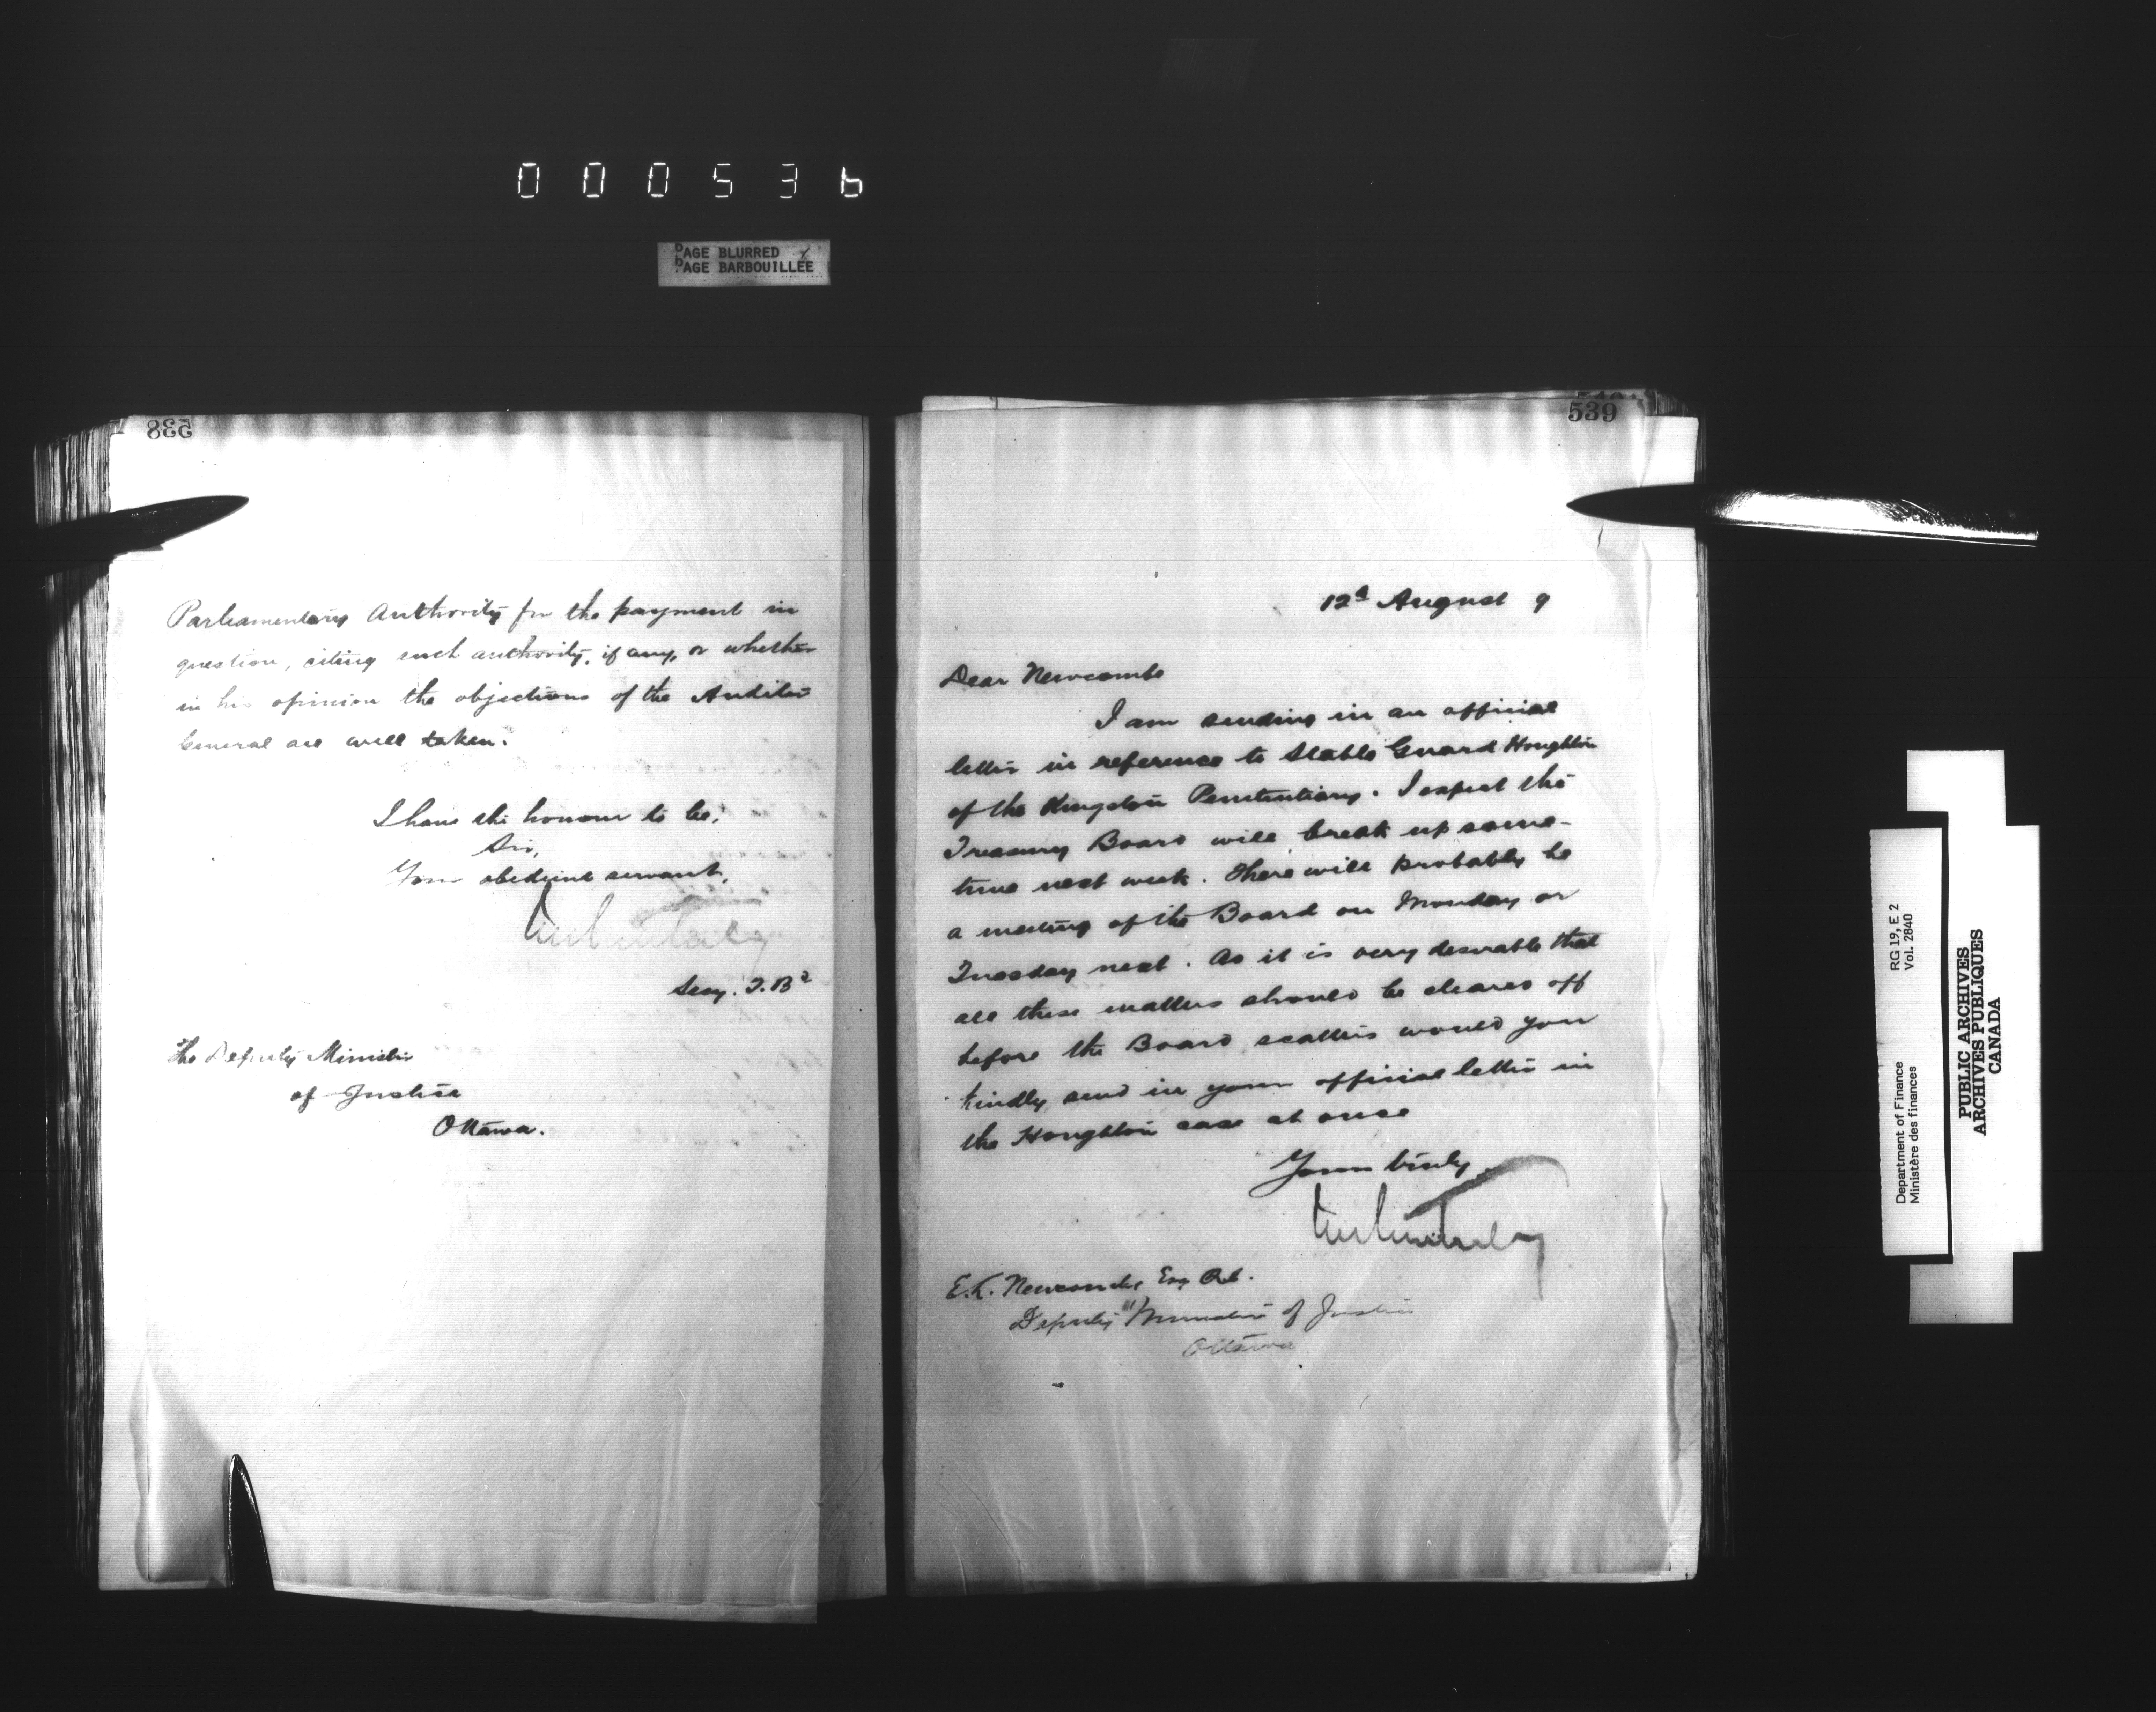 000536
PAGE BLURRED
PAGE BARBOUILLEE
538
Parliamentary Authority for the payment in
question, citing such authority, if any, or whether
in his opinion the objections of the Auditor
General are well taken.
I have the honour to be,
Sir,
Your obedient servant,
Secy. T. Bd
The Deputy Minister
of Justice
Ottawa.
539
12th August 9
Dear Newcombe
I am sending in an official
letter in reference to Stable Guard Houghton
of the Kingston Penitentiary. I expect the
Treasury Board will break up some-
time next week. There will probably be
a meeting of the Board on Monday or
Tuesday next. As it is very desirable that
all these matters should be cleared off
before the Board scatters would you
kindly send in your official letter in
the Houghton case at once
Yours truly
E.L. Newcombe, Esq Q.C.
Deputy Minister of Justice
Ottawa
Department of Finance
Ministère des finances
RG 19, E 2
Vol. 2840
PUBLIC ARCHIVES
ARCHIVES PUBLIQUES
CANADA